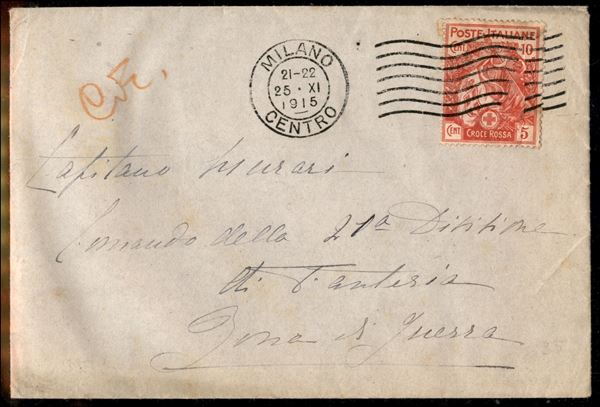 C.E.
MILANO
21-22
25 · XI
1915
CENTRO
POSTE ITALIANE
CENT 10
CENT 5
CROCE ROSSA
Capitano Murari
Comando della 21ª Divisione
di Fanteria
Zona di Guerra